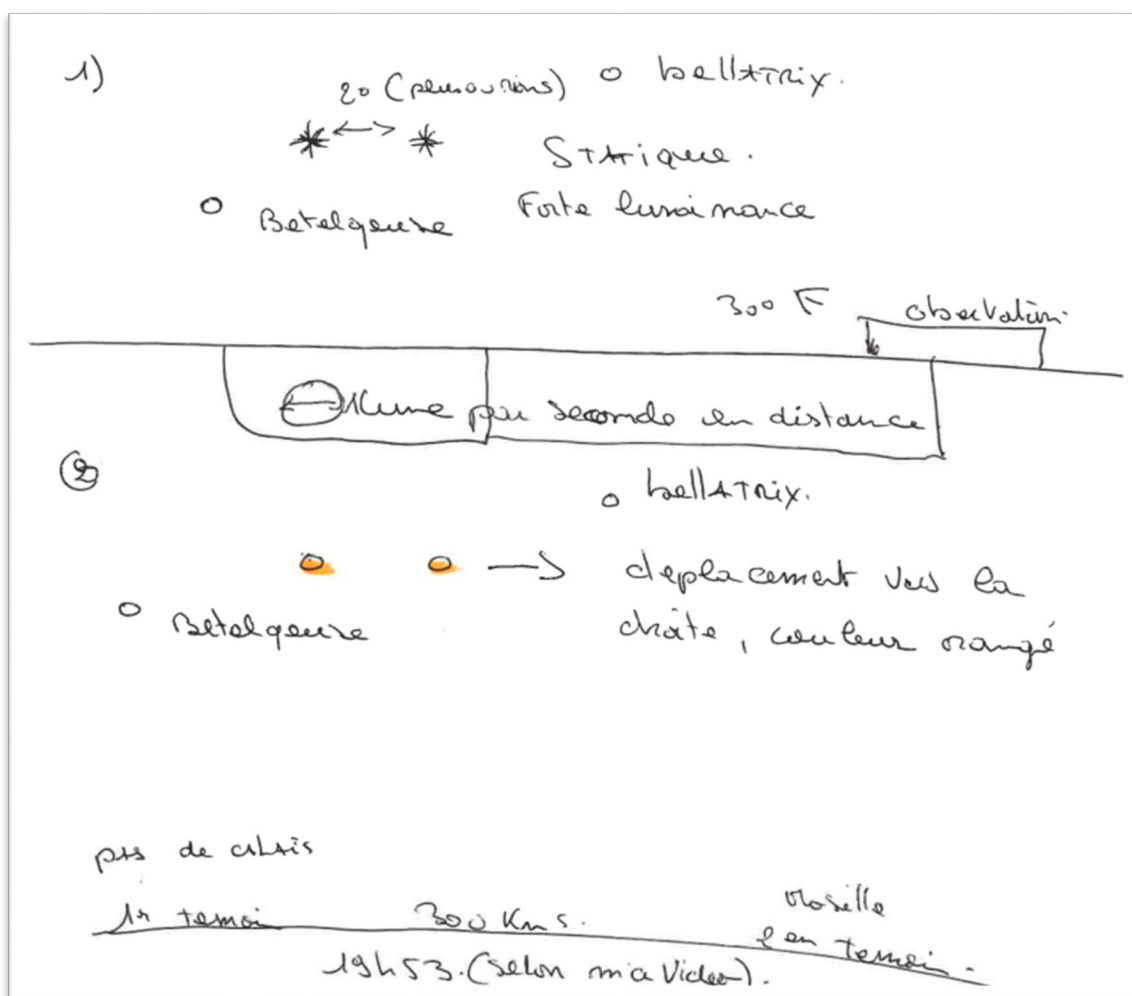 1)
20 (
o bellATRIX.
STATique.
o Betelgeuse
Forte luminance
300 F
observation
par seconde en distance
2
o bellATRIX.
→ deplacement vers la
droite, couleur orangé
o Betelgeuse
pas de calais
1r temoin 300 Kms. Moselle
2 en temoin.
19h53. (selon ma Video).